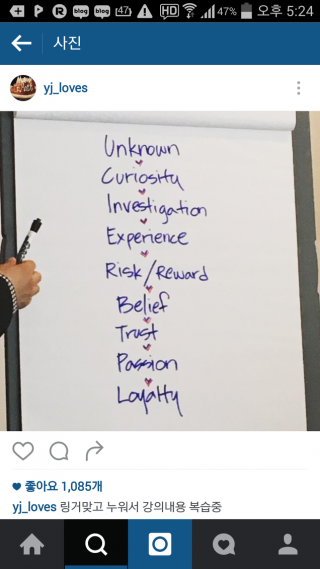 47%
오후 5:24
사진
yj_loves
Unknown
Curiosity
Investigation
Experience
Risk/Reward
Belief
Trust
Passion
Loyalty
좋아요 1,085개
yj_loves 링거맞고 누워서 강의내용 복습중